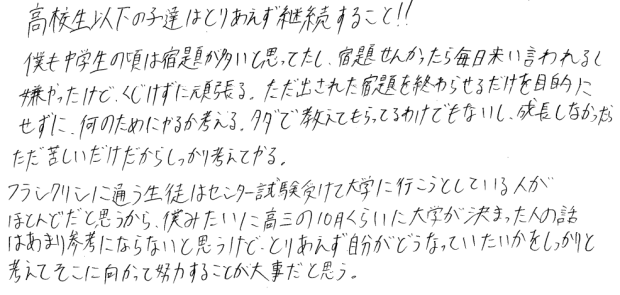 高校生以下の子達はとりあえず継続すること!!
僕も中学生の頃は宿題が多いと思ってたし、宿題せんかったら毎日来い言われるし
嫌やったけど、くじけずに頑張る。ただ出された宿題を終わらせるだけを目的に
せずに、何のためにやるか考える。タダで教えてもらってるわけでもないし、成長しなかったら
ただ苦しいだけだからしっかり考えてやる。
フランクリンに通う生徒はセンター試験受けて大学に行こうとしている人が
ほとんどだと思うから、僕みたいに高三の10月くらいに大学が決まった人の話
はあまり参考にならないと思うけど、とりあえず自分がどうなっていたいかをしっかりと
考えてそこに向かって努力することが大事だと思う。